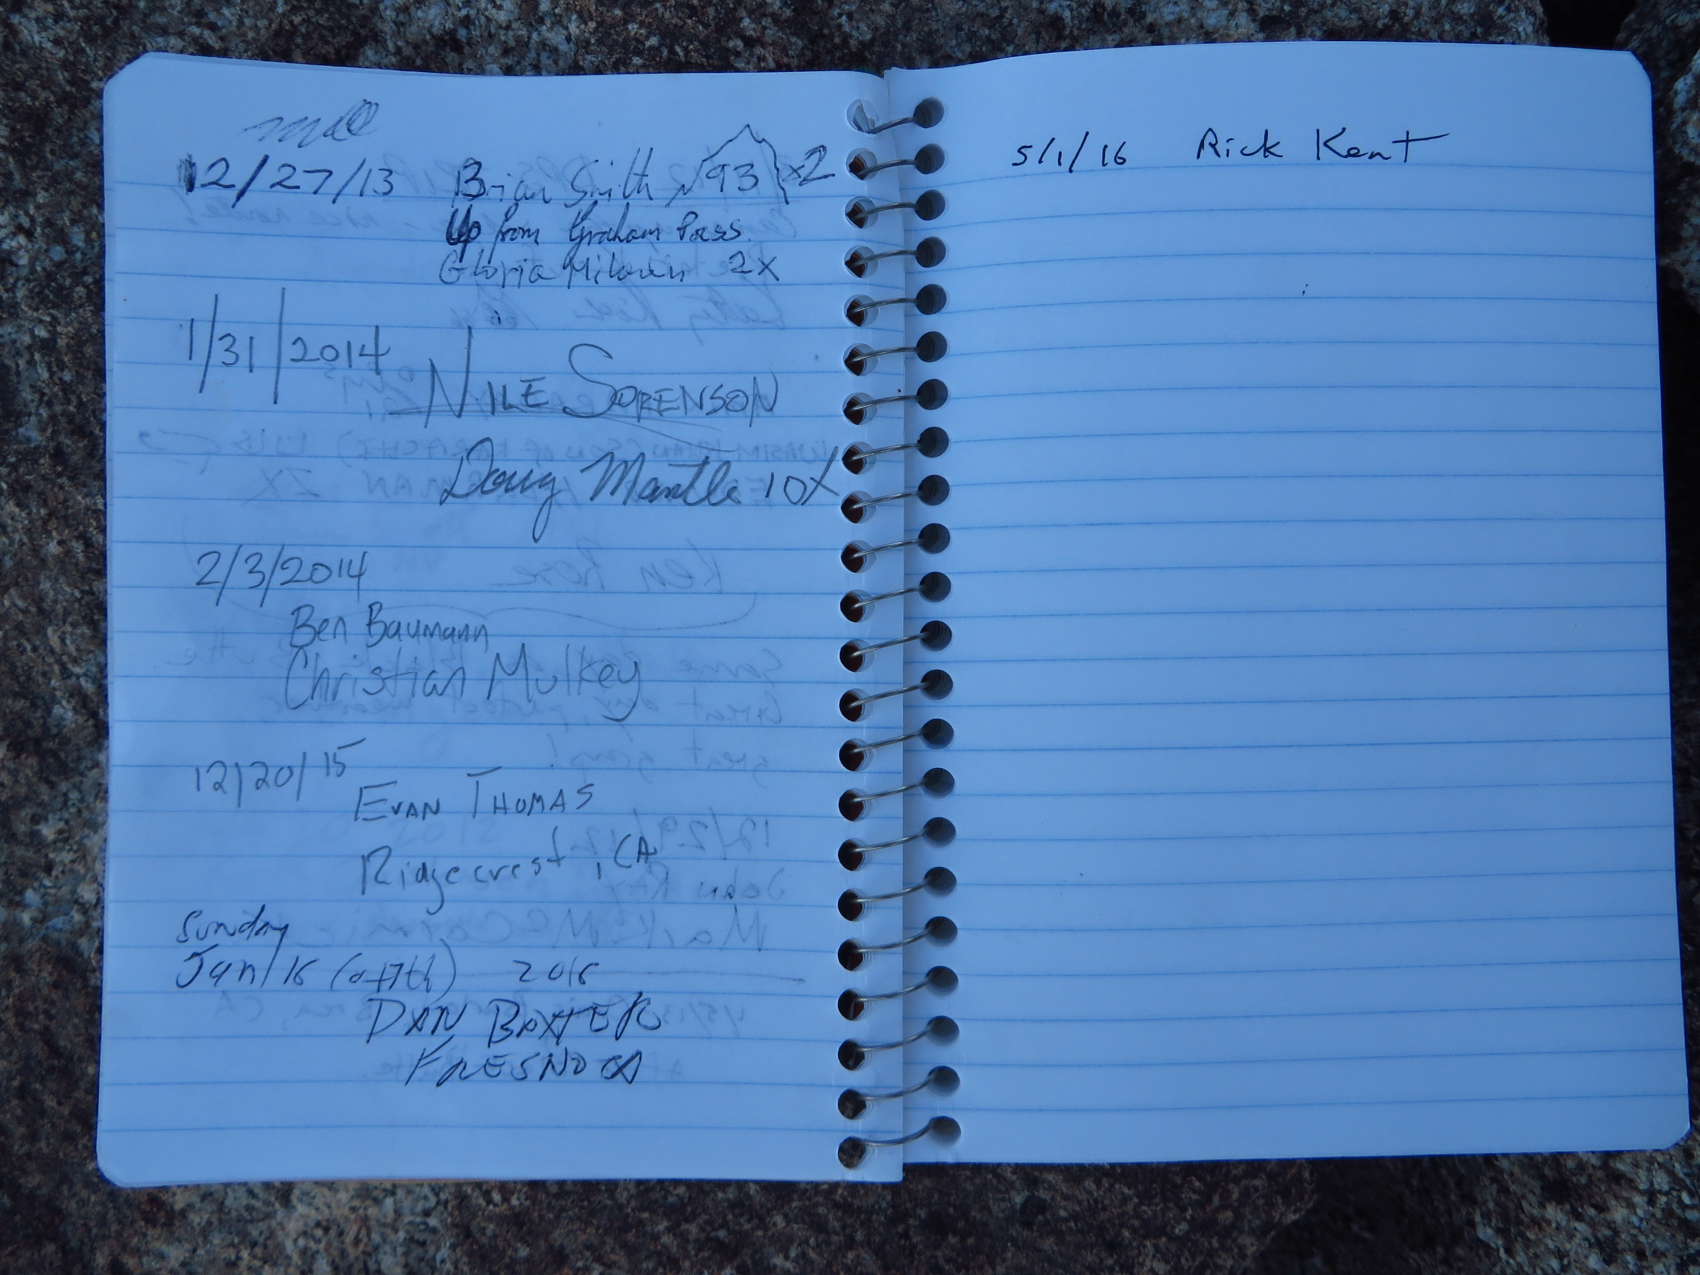 12/27/13 Brian Smith 93 x2
Up from Graham Pass.
Gloria 2x
1/31/2014
NILE SORENSON
Doug Mantle 10X
2/3/2014
Ben Baumann
Christian Mulkey
12/20/15
EVAN THOMAS
Ridgecrest, CA
Sunday
Jan 16 (or 17th) 2016
DAN BAXTER
FRESNO CA
5/1/16 Rick Kent